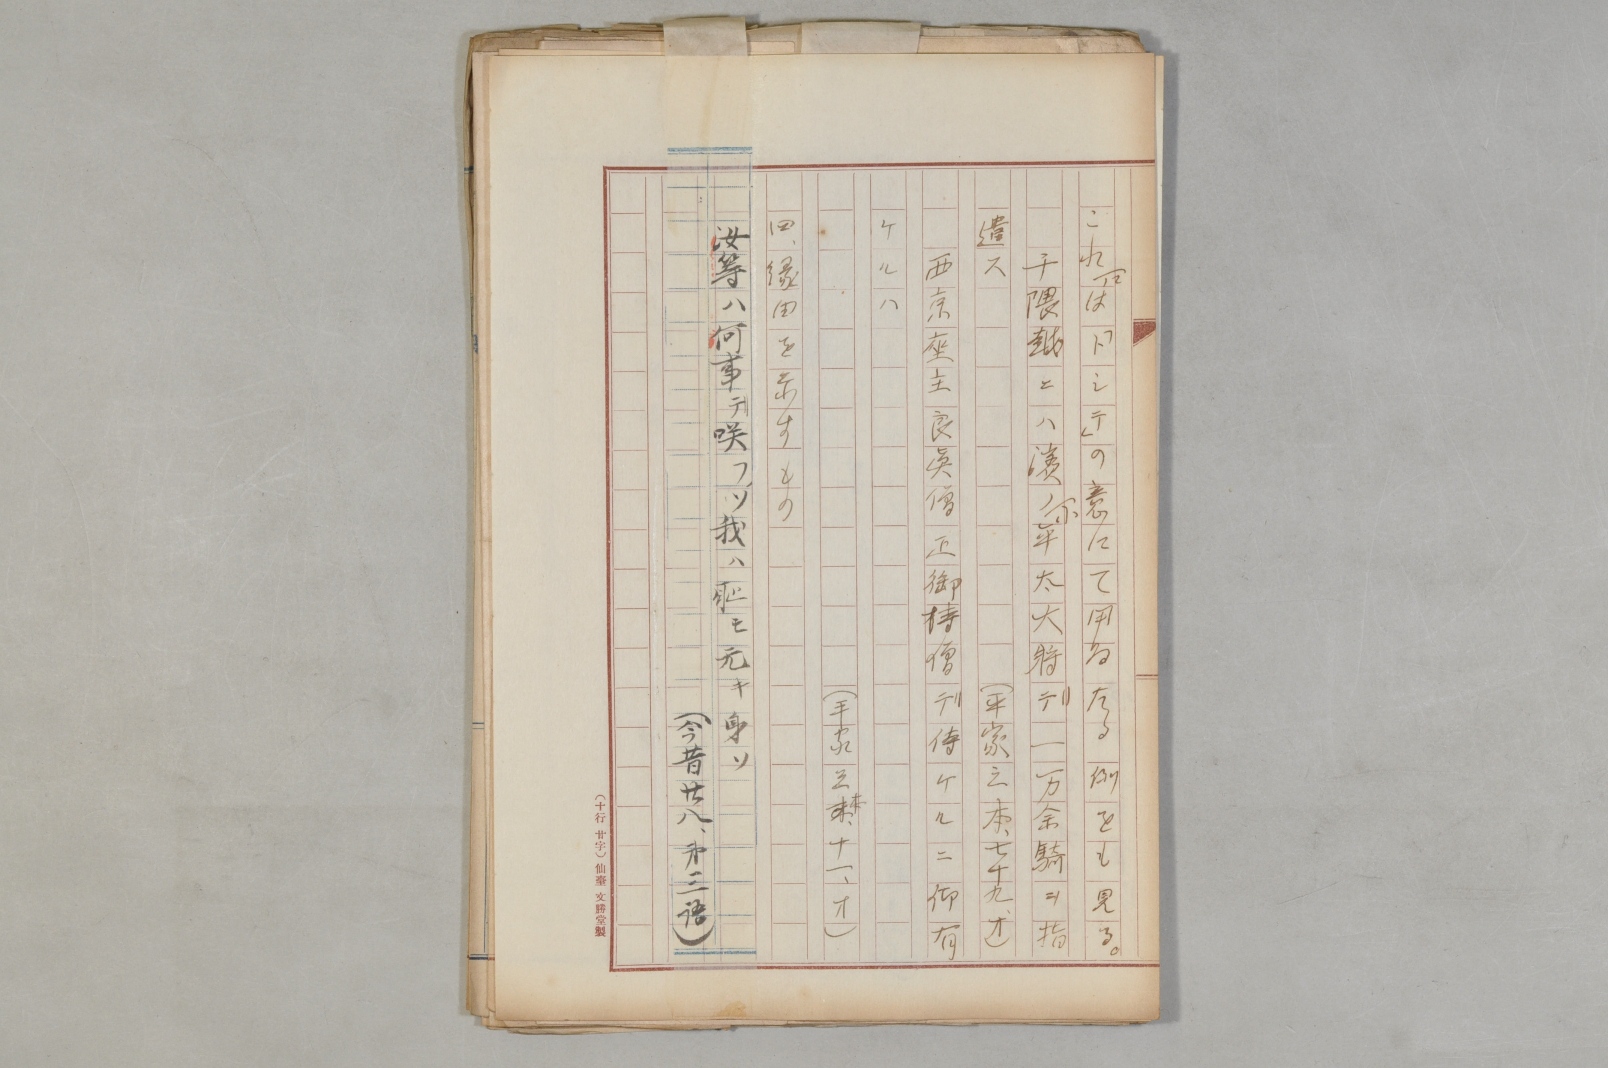 これは「トシテ」の意にて用ゐたる例をも見る。
千隈越ヒハ濱ノ平太大将デ一万余騎ヲ指
遣ス
(平家三本、七十九、オ)
西京座主良眞僧正御持僧デ侍ケルニ御有
ケルハ
(平家三末、十一、オ)
四、縁由を示すもの
汝等ハ何事デ咲フソ我ハ恥モ无キ身ソ
(今昔廿八、第三語)
(十行廿字)仙臺文勝堂製